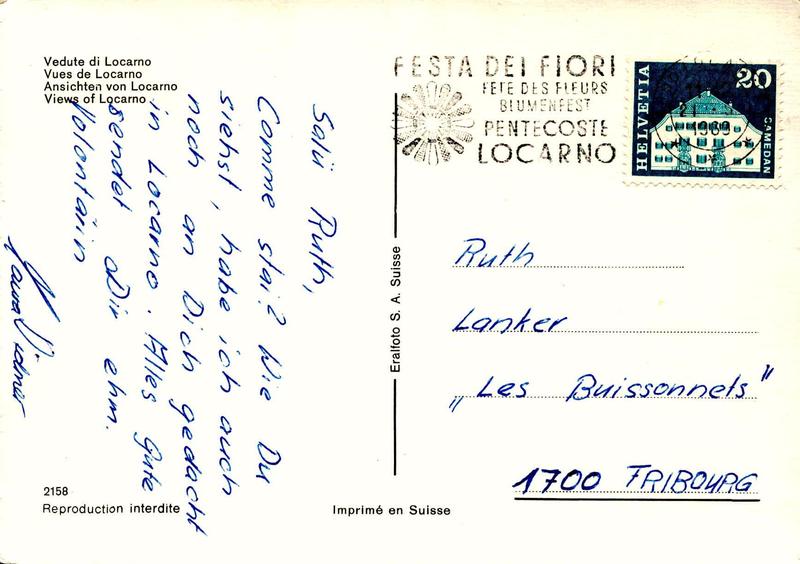 Vedute di Locarno
Vues de Locarno
Ansichten von Locarno
Views of Locarno
Salü Ruth,
Comme stai? Wie Du
siehst, habe ich auch
noch an Dich gedacht
in Locarno. Alles Gute
sendet Dir ehm.
Volontärin
2158
Reproduction interdite
Imprimé en Suisse
Eralfoto S. A. Suisse
FESTA DEI FIORI
FETE DES FLEURS
BLUMENFEST
PENTECOSTE
LOCARNO
HELVETIA
20
SAMEDAN
1969
Ruth
Lanker
„Les Buissonnets"
1700 FRIBOURG